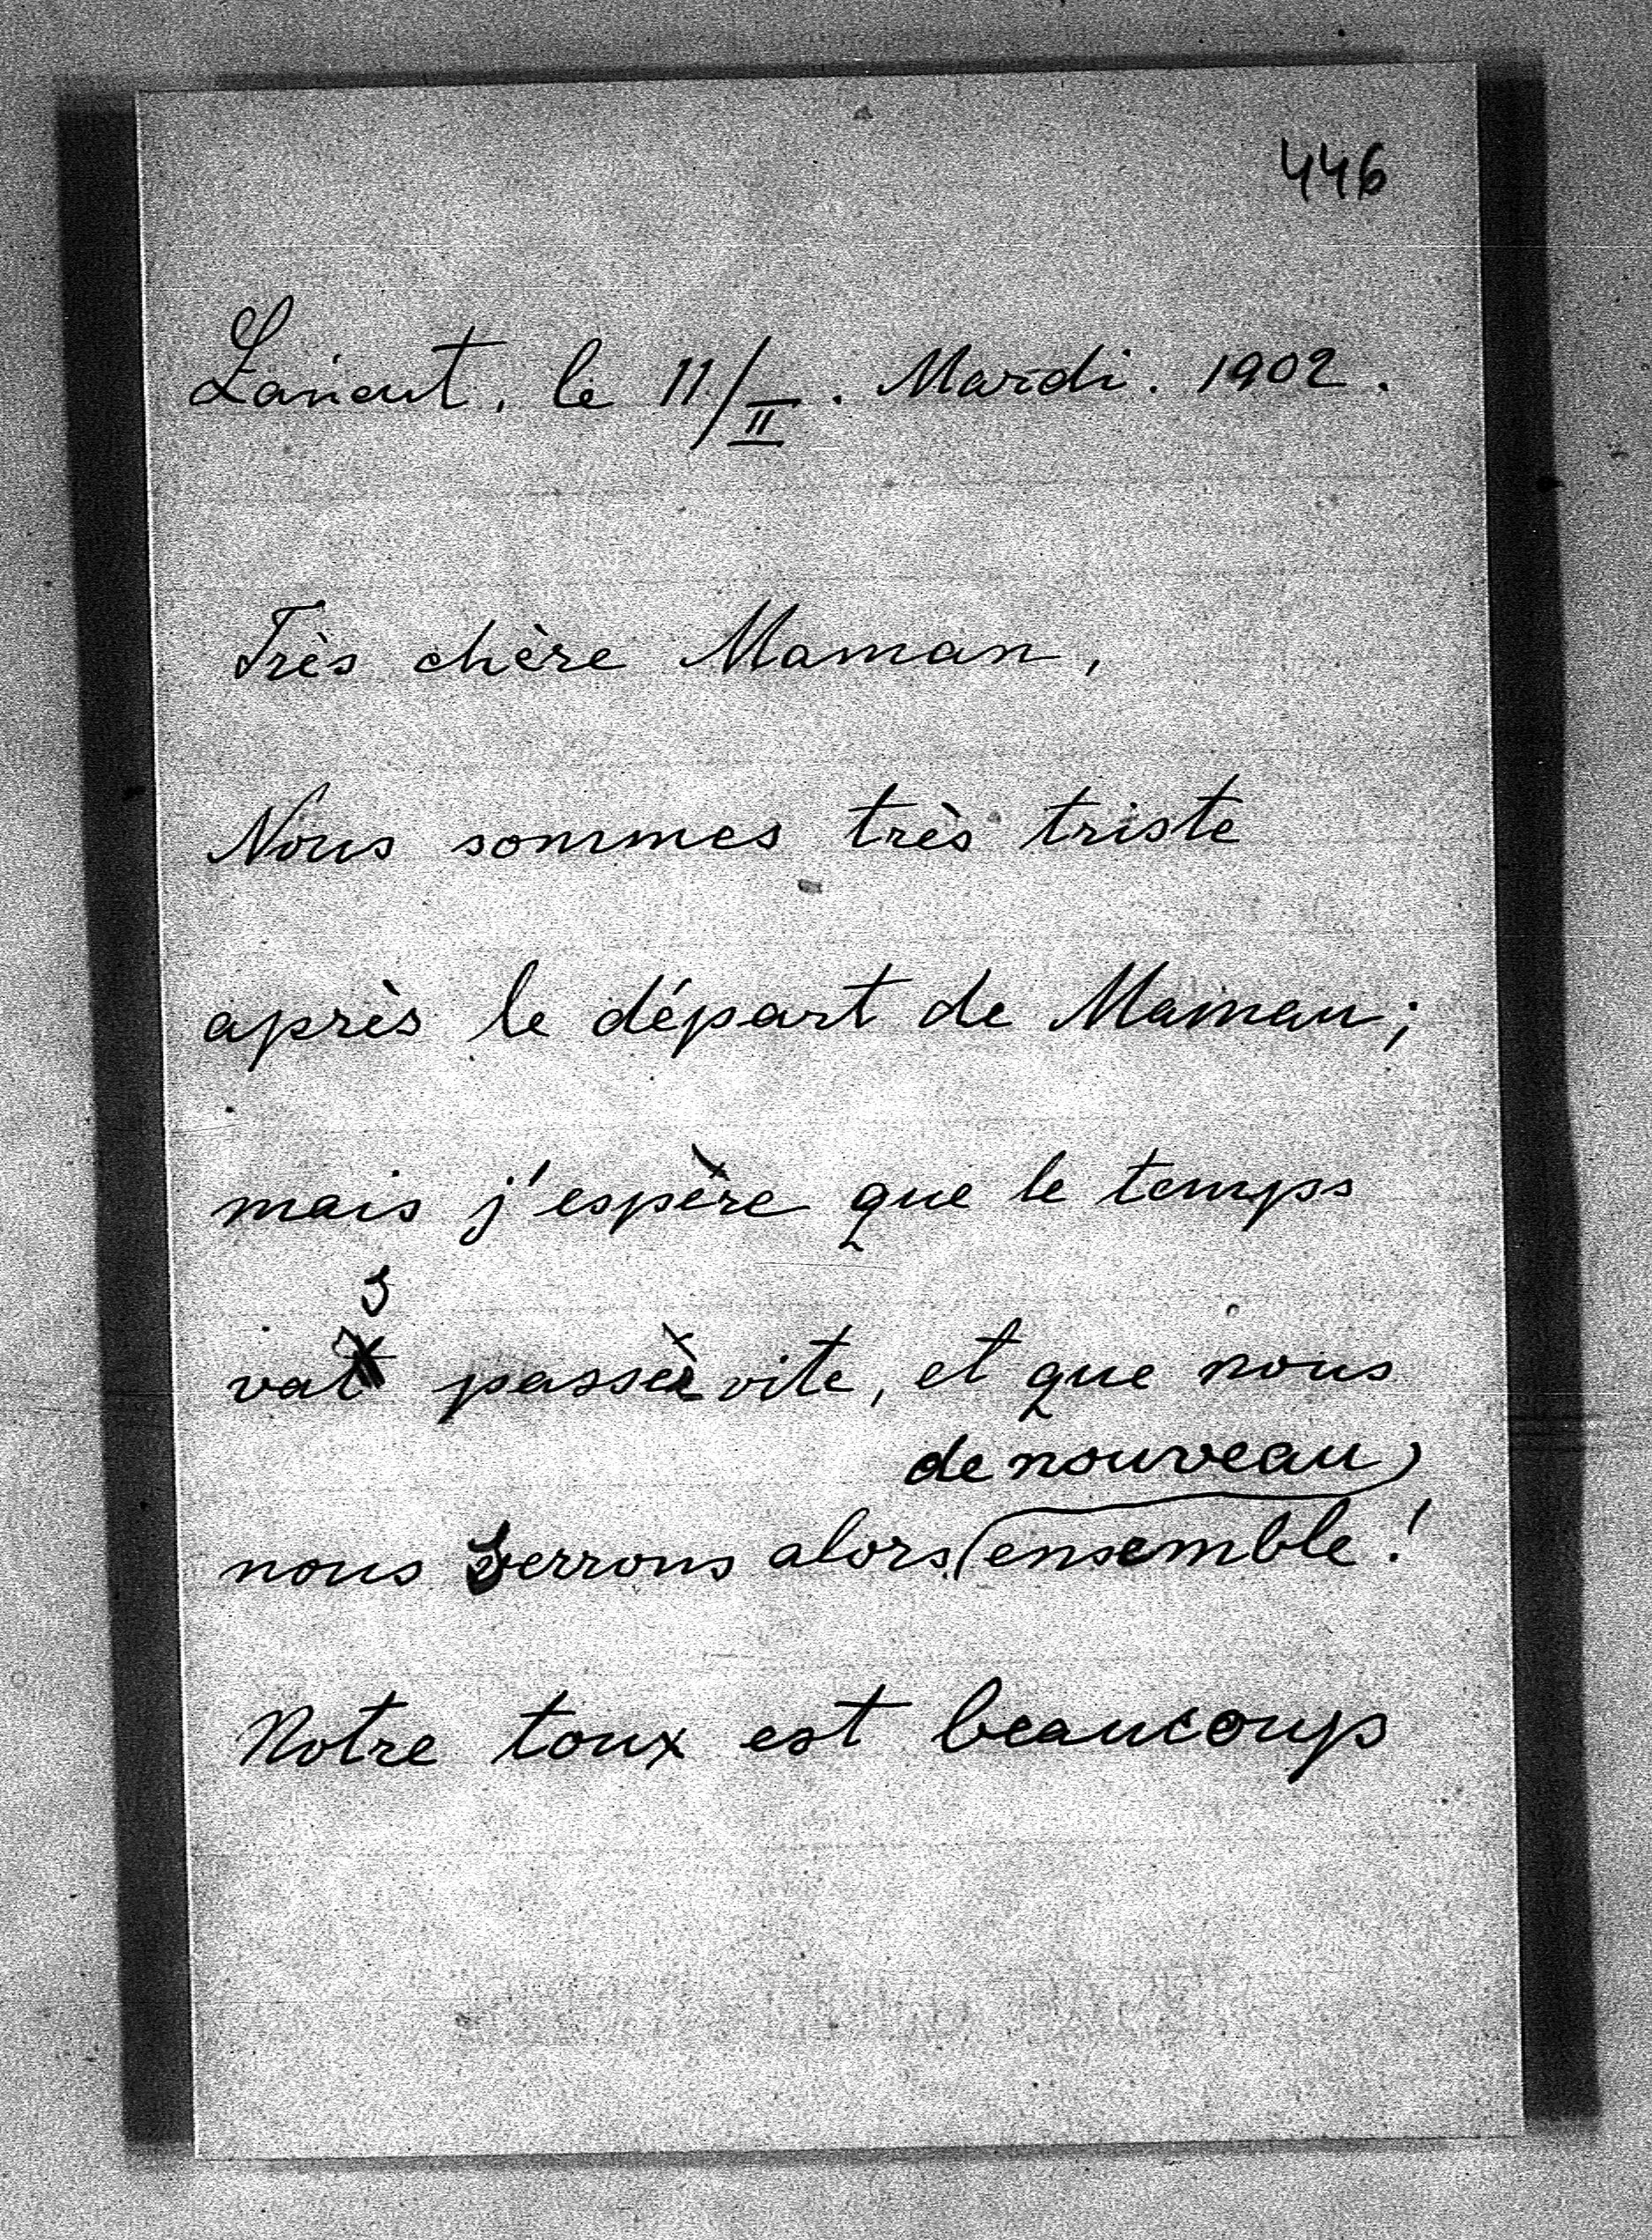 446
Łańcut, le 11/II. Mardi. 1902.
Très chère Maman,
Nous sommes très triste
après le départ de Maman;
mais j'espère que le temps
s
vat passer vite, et que nous
de nouveau
nous serrons alors ensemble!
Notre toux est beaucoup